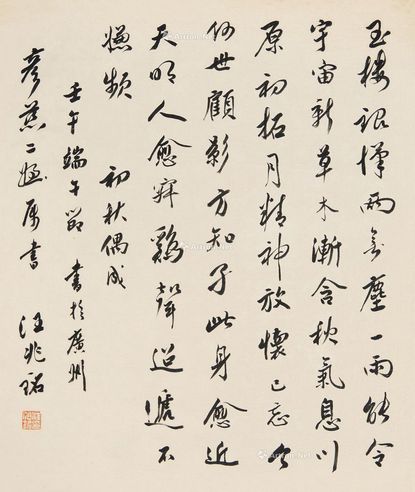 玉樓銀漢兩無塵一雨能令
宇宙新草木漸含秋氣息川
原初拓月精神放懷已忘今
何世顧影方知孑此身愈近
天明人愈寐鷄聲迢遞不
嫌頻 初秋偶成
壬午端午節書於廣州
彥慈二姪属書 汪兆銘